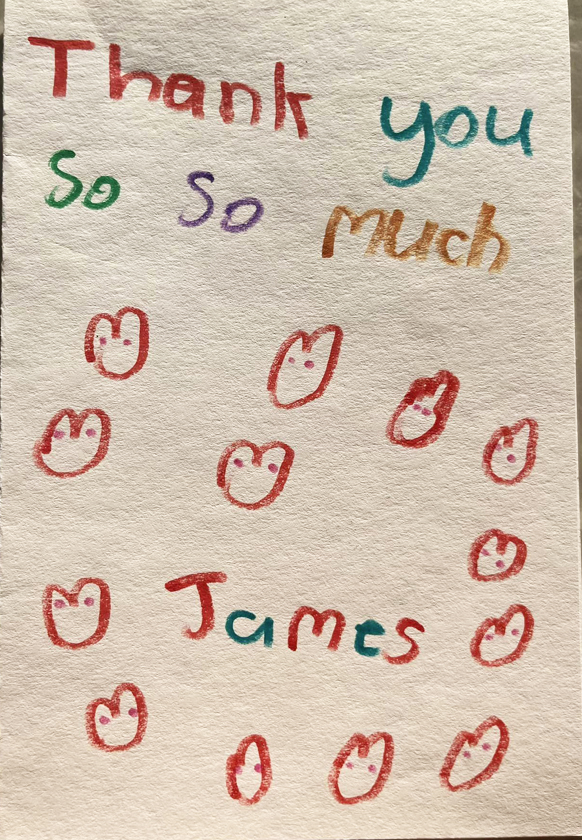 Thank you
So So much
James